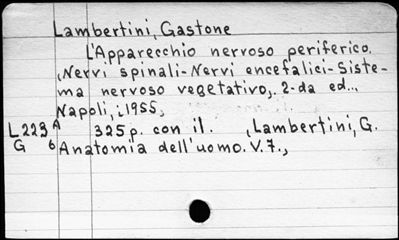 Lambertini, Gastone
L'Apparecchio nervoso periferico.
Nervi spinali-Nervi encefalici-Siste-
ma nervoso vegetativo,. 2-da ed..,
Napoli, 1955,
L223 A 325p. con il. , Lambertini, G.
G 6 Anatomia dell'uomo. V.7.,